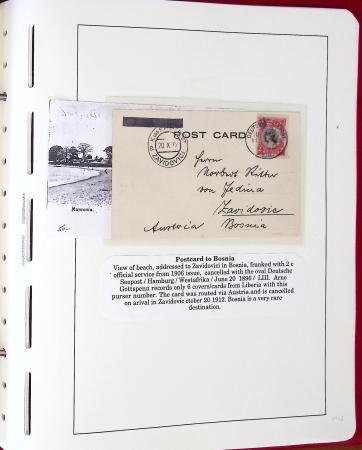 Monrovia.
50,-
K.u.K. 
20 X 12
ZAVIDOVIĆI
POST CARD
Herrn
Norbert Ritter
von Jedina
Zavidovic
Austria Bosnia
Postcard to Bosnia
View of beach, addressed to Zavidovizi in Bosnia, franked with 2 c
official service from 1906 issue, cancelled with the oval Deutsche
Seepost / Hamburg / Westafrika / June 20 1896 / LIII. Arno
Gottspenn records only 6 covers/cards from Liberia with this
purser number. The card was routed via Austria and is cancelled
on arival in Zavidovic ctober 20 1912. Bosnia is a very rare
destination.